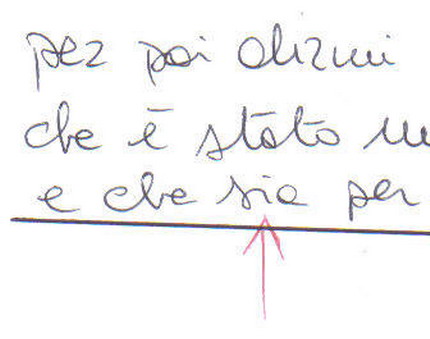 per poi dirmi
che è stato un
e che sia per